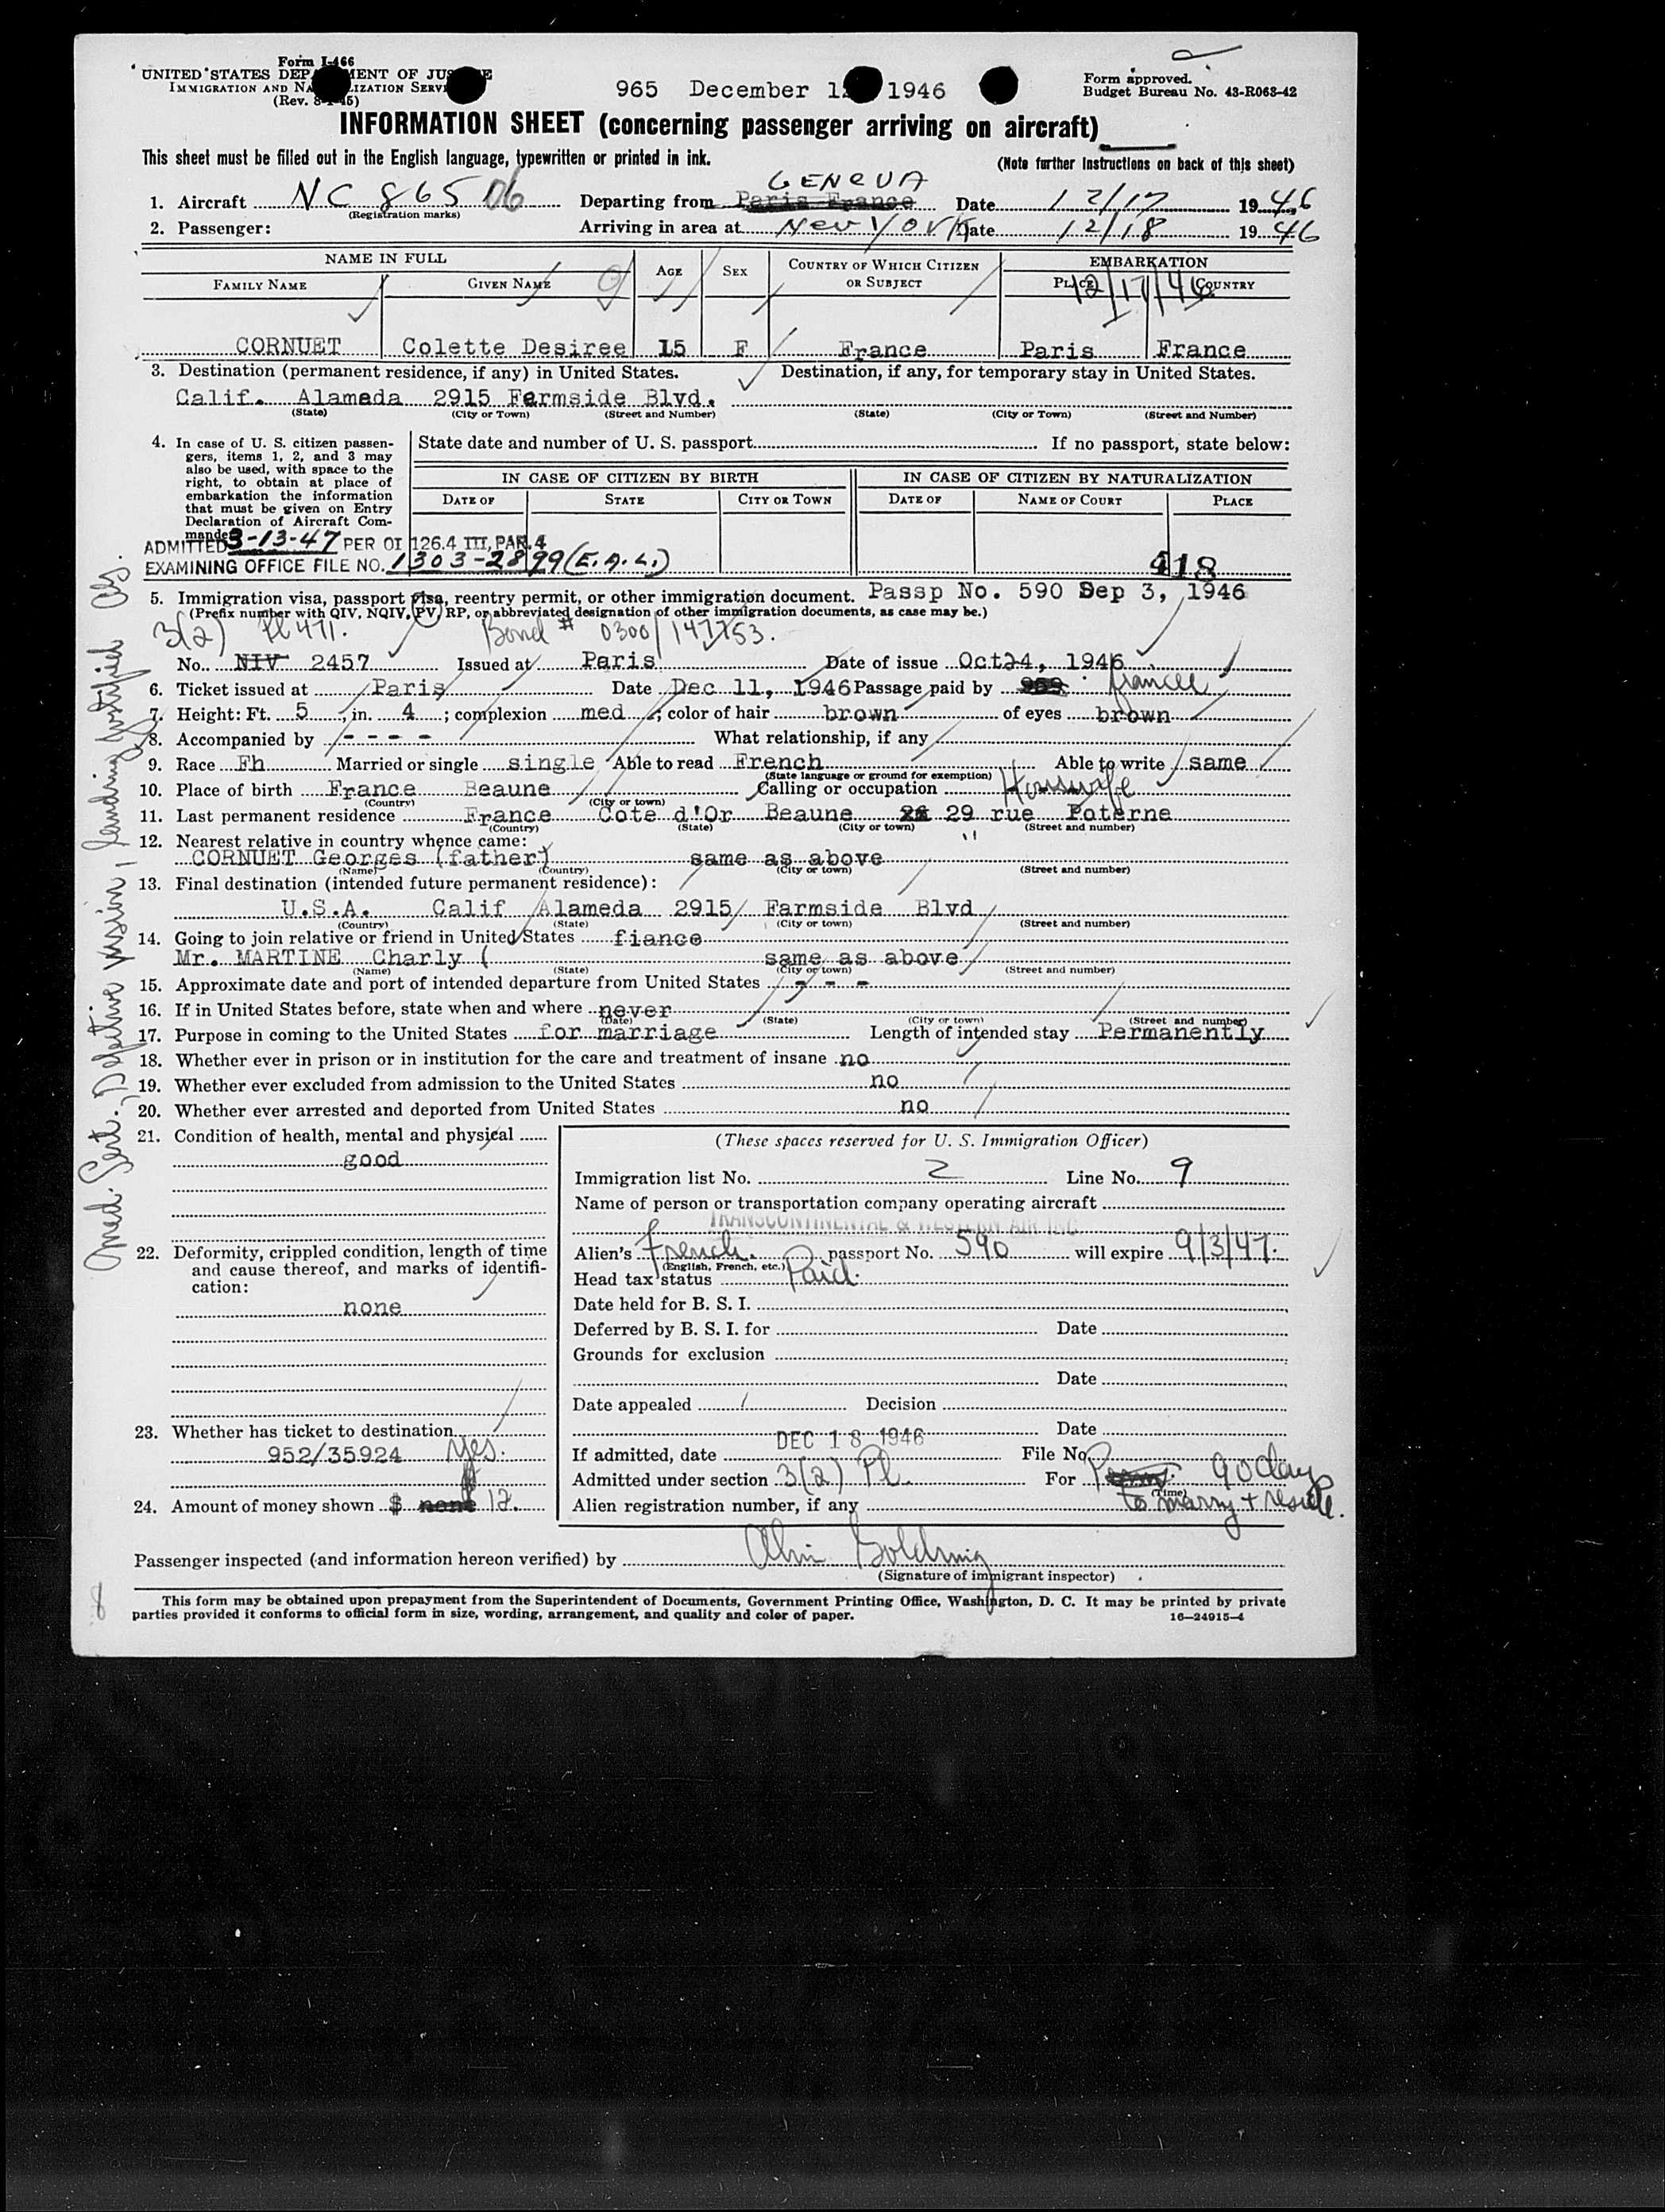 Form I-466
UNITED STATES DEPARTMENT OF JUSTICE
IMMIGRATION AND NATURALIZATION SERVICE
(Rev. 8-1-45)
965 December 1 1946
Form approved.
Budget Bureau No. 43-R068-42
INFORMATION SHEET (concerning passenger arriving on aircraft)
This sheet must be filled out in the English language, typewritten or printed in ink.
(Note further instructions on back of this sheet)
GENEVA
1. Aircraft NC 86506 Departing from Paris France Date 12/17 1946
(Registration marks)
2. Passenger: Arriving in area at New York Date 12/18 1946
NAME IN FULL AGE SEX COUNTRY OF WHICH CITIZEN OR SUBJECT EMBARKATION
FAMILY NAME GIVEN NAME PLACE COUNTRY
12/17/46
CORNUET Colette Desiree 15 F France Paris France
3. Destination (permanent residence, if any) in United States. Destination, if any, for temporary stay in United States.
Calif. Alameda 2915 Farmside Blvd.
(State) (City or Town) (Street and Number) (State) (City or Town) (Street and Number)
4. In case of U. S. citizen passen-
gers, items 1, 2, and 3 may
also be used, with space to the
right, to obtain at place of
embarkation the information
that must be given on Entry
Declaration of Aircraft Com-
mander
State date and number of U. S. passport If no passport, state below:
IN CASE OF CITIZEN BY BIRTH IN CASE OF CITIZEN BY NATURALIZATION
DATE OF STATE CITY OR TOWN DATE OF NAME OF COURT PLACE
ADMITTED 3-13-47 PER OI 126.4 III, PAR. 4
EXAMINING OFFICE FILE NO. 1303-2899 (E.A.L.)
418
5. Immigration visa, passport visa, reentry permit, or other immigration document. Passp No. 590 Sep 3, 1946
(Prefix number with QIV, NQIV, PV, RP, or abbreviated designation of other immigration documents, as case may be.)
3(2) Pl 471. Bond # 0300/147753.
No. NIV 2457 Issued at Paris Date of issue Oct 24, 1946
6. Ticket issued at Paris Date Dec 11, 1946 Passage paid by fiancee
7. Height: Ft. 5, in. 4; complexion med; color of hair brown of eyes brown
8. Accompanied by - - - - What relationship, if any
9. Race Fh Married or single single Able to read French Able to write same
(State language or ground for exemption)
10. Place of birth France Beaune Calling or occupation Housewife
(Country) (City or town)
11. Last permanent residence France Cote d'Or Beaune 29 rue Poterne
(Country) (State) (City or town) (Street and number)
12. Nearest relative in country whence came:
CORNUET Georges (father) same as above
(Name) (Country) (City or town) (Street and number)
13. Final destination (intended future permanent residence):
U.S.A. Calif Alameda 2915 Farmside Blvd
(Country) (State) (City or town) (Street and number)
14. Going to join relative or friend in United States fiance
Mr. MARTINE Charly ( same as above
(Name) (State) (City or town) (Street and number)
15. Approximate date and port of intended departure from United States - - -
16. If in United States before, state when and where never
(Date) (State) (City or town) (Street and number)
17. Purpose in coming to the United States for marriage Length of intended stay Permanently
18. Whether ever in prison or in institution for the care and treatment of insane no
19. Whether ever excluded from admission to the United States no
20. Whether ever arrested and deported from United States no
21. Condition of health, mental and physical
good
22. Deformity, crippled condition, length of time
and cause thereof, and marks of identifi-
cation:
none
23. Whether has ticket to destination
952/35924 yes.
24. Amount of money shown $ none 12.
(These spaces reserved for U. S. Immigration Officer)
Immigration list No. 2 Line No. 9
Name of person or transportation company operating aircraft
TRANSCONTINENTAL & WESTERN AIR INC
Alien's French. passport No. 590 will expire 9/3/47.
(English, French, etc.)
Head tax status Paid.
Date held for B. S. I.
Deferred by B. S. I. for Date
Grounds for exclusion
Date
Date appealed Decision
Date
DEC 18 1946
If admitted, date File No.
Admitted under section 3(2) Pl. For Perm. 90 days
(Time)
to marry + reside.
Alien registration number, if any
Passenger inspected (and information hereon verified) by
(Signature of immigrant inspector)
This form may be obtained upon prepayment from the Superintendent of Documents, Government Printing Office, Washington, D. C. It may be printed by private
parties provided it conforms to official form in size, wording, arrangement, and quality and color of paper.
16—24915-4
Med. Cert. Defective vision, landing justified
8